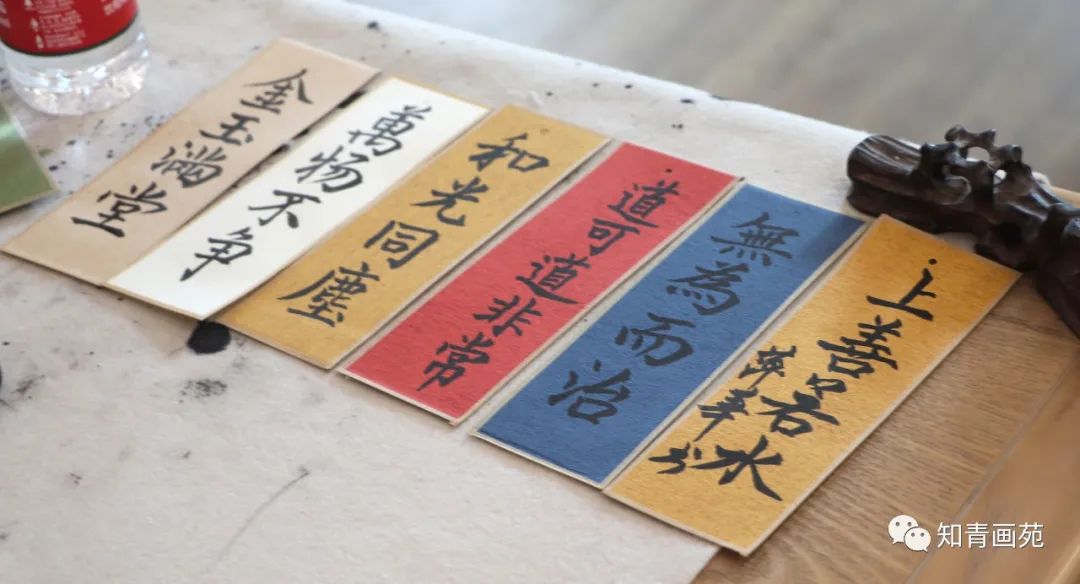 金玉滿堂
萬物不争
和光同塵
道可道非常
無為而治
上善若水
知青画苑